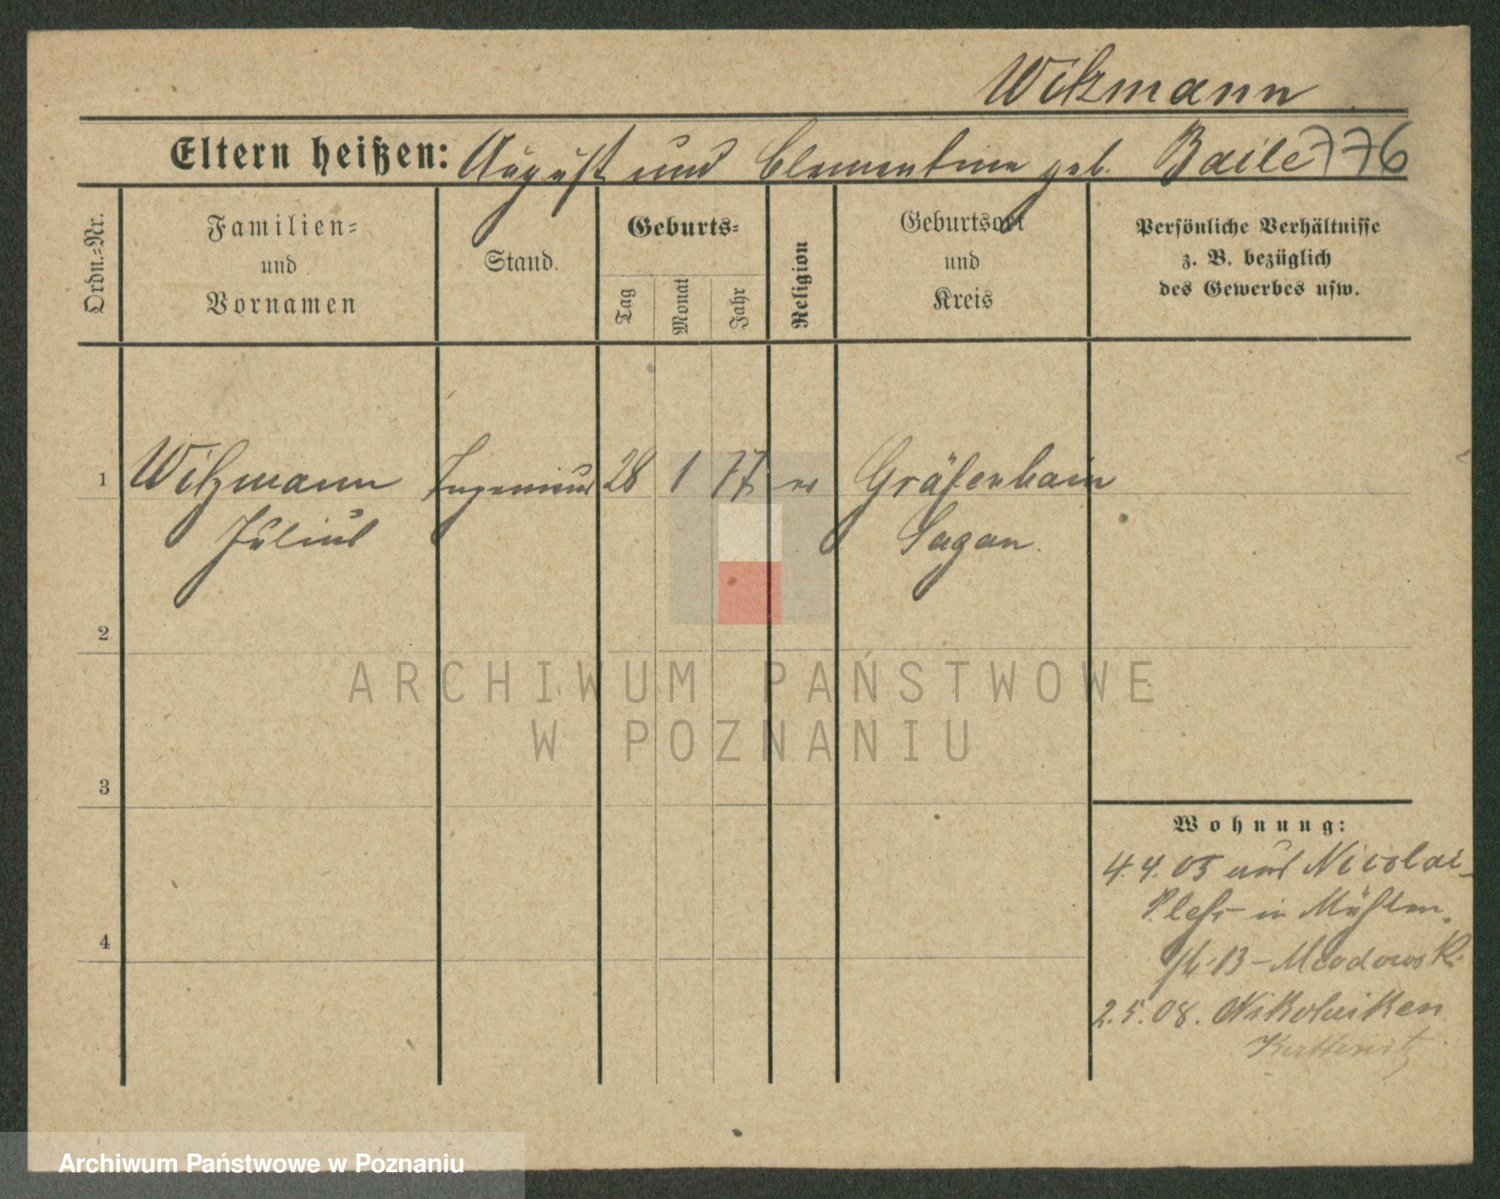 Witzmann
Eltern heißen: August und Clementine geb. Baile 776
Ordn.-Nr.
Familien-
und
Vornamen
Stand.
Geburts-
Tag
Monat
Jahr
Religion
Geburtsort
und
Kreis
Persönliche Verhältnisse
z. B. bezüglich
des Gewerbes usw.
1 Witzmann Ingenieur 28 1 77 ev Gräfenhain
Julius Sagan.
2
3
4
Wohnung:
4.4.05 aus Nicolai-
Pless in Mühlen-
str. 13 - Miodowski
2.5.08. Nikolaiken
Kattowitz
ARCHIWUM PAŃSTWOWE
W POZNANIU
Archiwum Państwowe w Poznaniu